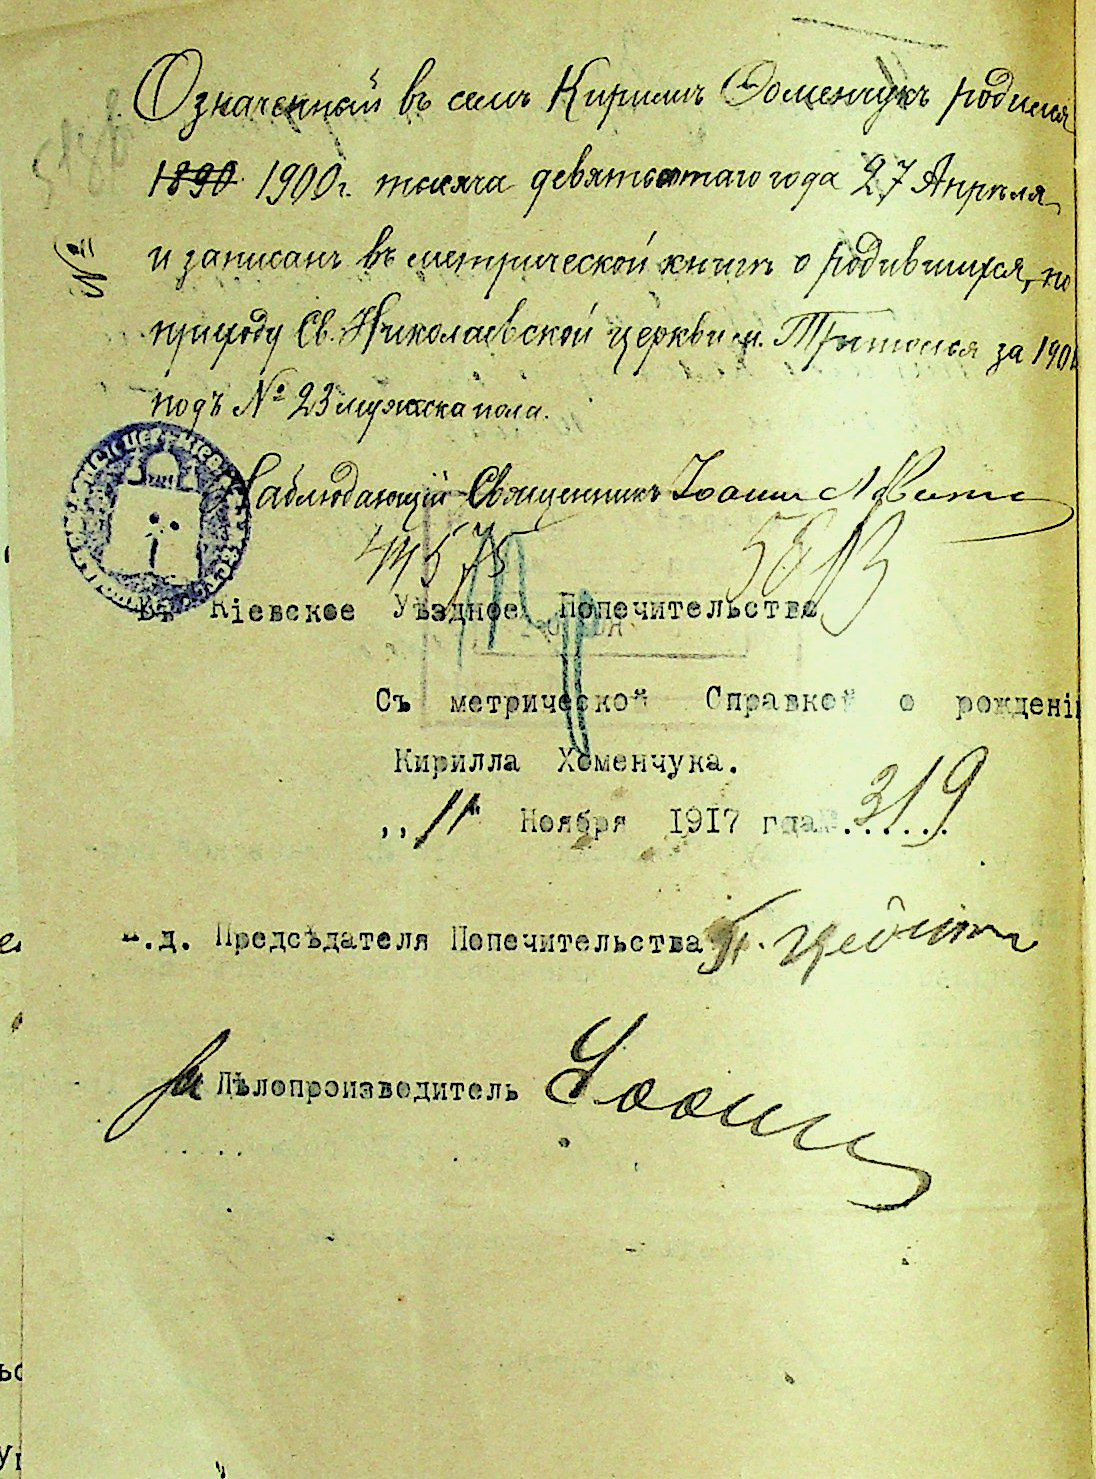 Означенный въ семъ Кириллъ Хоменчукъ родился
1890 1900г. тысяча девятьсотаго года 27 Апрѣля
и записанъ въ метрической книгѣ о родившихся, по
приходу Св. Николаевской церкви м. Триполья за 1900
подъ № 23 мужска пола.
№
Наблюдающій Священникъ Іоаннъ
44575 5813
Въ Кіевское Уѣздное Попечительство
Съ метрической Справкой о рожденіи
Кирилла Хоменчука.
,,11" Ноября 1917 гда № 319
и.д. Предсѣдателя Попечительства
За Дѣлопроизводитель